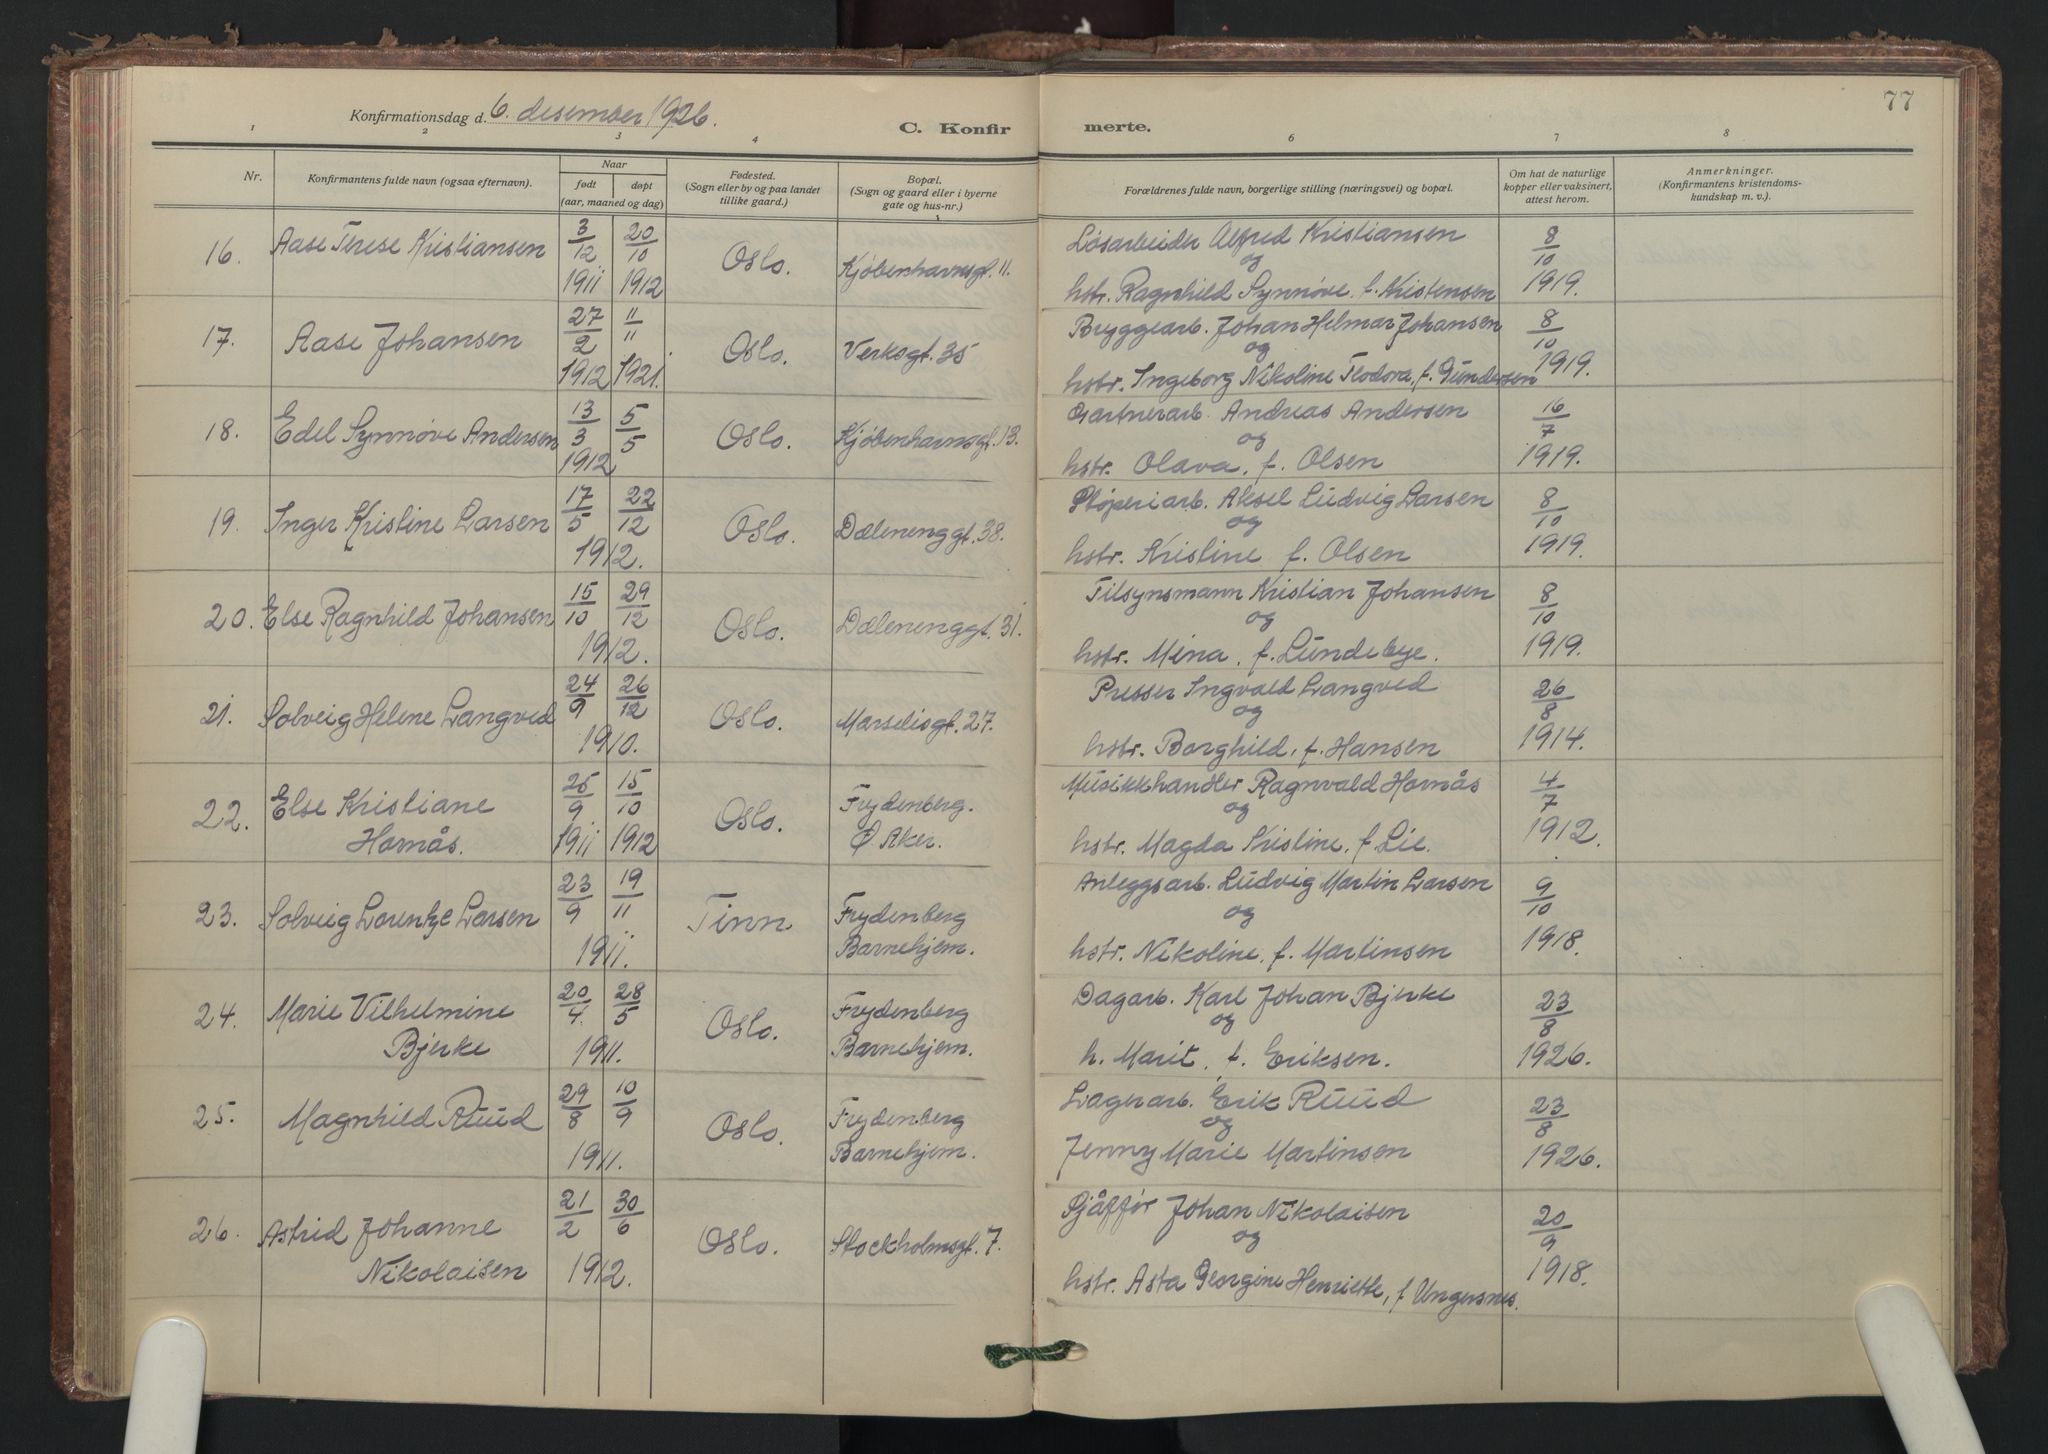 77
Konfirmationsdag d. 6. desember 1926.
C. Konfir merte.
1 2 3 4 5 6 7 8
Nr.
Konfirmantens fulde navn (ogsaa efternavn).
Naar
født døpt
(aar, maaned og dag)
Fødested.
(Sogn eller by og paa landet
tillike gaard.)
Bopæl.
(Sogn og gaard eller i byerne
gate og hus-nr.)
Forældrenes fulde navn, borgerlige stilling (næringsvei) og bopæl.
Om hat de naturlige
kopper eller vaksinert,
attest herom.
Anmerkninger.
(Konfirmantens kristendoms-
kundskap m. v.).
16. Aase Terese Kristiansen 3/12 1911 20/10 1912 Oslo. Kjøbenhavnsgt. 11.
Løsarbeider Alfred Kristiansen
og
hstr. Ragnhild Synnøve, f. Kristensen
8/10 1919.
17. Aase Johansen 27/2 1912 11/11 1921. Oslo. Verksgt. 35
Bryggearb. Johan Helmar Johansen
og
hstr. Ingeborg Nikoline Teodora, f. Gundersen
8/10 1919.
18. Edel Synnøve Andersen 13/3 5/5 1912 Oslo. Kjøbenhavnsgt. 13.
Gartnerarb. Andreas Andersen
og
hstr. Olava, f. Olsen
16/7 1919.
19. Inger Kristine Larsen 17/5 22/12 1912. Oslo. Dælenenggt. 38.
Støperiarb. Aksel Ludvig Larsen
og
hstr. Kristine f. Olsen
8/10 1919.
20. Else Ragnhild Johansen 15/10 29/12 1912. Oslo. Dælenenggt. 31.
Tilsynsmann Kristian Johansen
og
hstr. Mina, f. Lundebye.
8/10 1919.
21. Solveig Helene Langved 24/9 26/12 1910. Oslo. Marselisgt. 27.
Presser Ingvald Langved
og
hstr. Borghild, f. Hansen
26/8 1914.
22. Else Kristiane
Hornås. 25/9 1911 15/10 1912 Oslo. Frydenberg.
Ø. Aker.
Musikkhandler Ragnvald Hornås
og
hstr. Magda Kristine, f. Lie.
4/7 1912.
23. Solveig Lorentze Larsen 23/9 19/11 1911. Tinn Frydenberg
Barnehjem.
Anleggsarb. Ludvig Martin Larsen
og
hstr. Nikoline, f. Martinsen
9/10 1918.
24. Marie Vilhelmine
Bjerke 20/4. 28/5 1911. Oslo. Frydenberg
Barnehjem.
Dagarb. Karl Johan Bjerke
og
h. Marit, f. Eriksen.
23/8 1926.
25. Magnhild Ruud 29/8 10/9 1911. Oslo. Frydenberg
Barnehjem.
Lagerarb. Erik Ruud
og
Jenny Marie Martinsen
23/8 1926.
26. Astrid Johanne
Nikolaisen 21/2 30/6 1912. Oslo. Stockholmsgt. 7.
Sjåffør Johan Nikolaisen
og
hstr. Asta Georgine Henriette, f. Ungersnes.
20/9 1918.